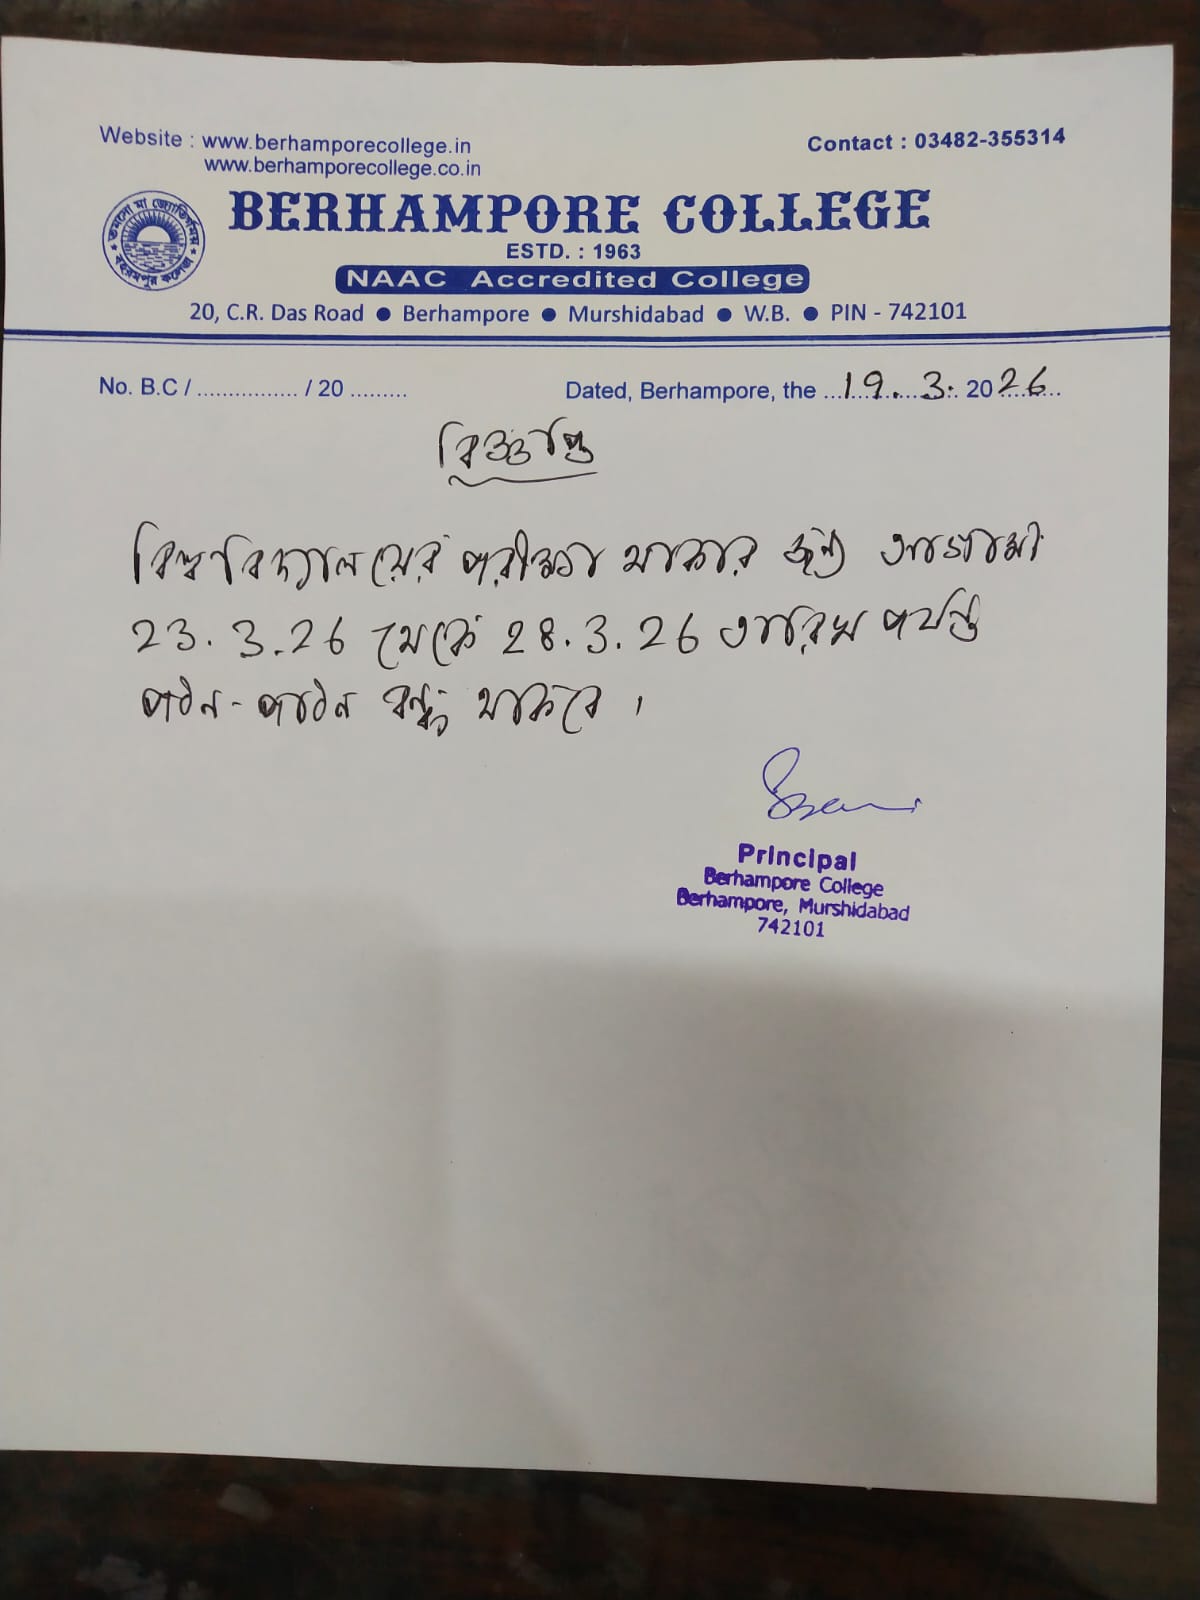 Website : www.berhamporecollege.in
www.berhamporecollege.co.in
Contact : 03482-355314
তমসো মা জ্যোতির্গময়
বহরমপুর কলেজ
BERHAMPORE COLLEGE
ESTD. : 1963
NAAC Accredited College
20, C.R. Das Road ● Berhampore ● Murshidabad ● W.B. ● PIN - 742101
No. B.C / ................ / 20 ......... Dated, Berhampore, the ...19...3.. 2026...
বিজ্ঞপ্তি
বিশ্ববিদ্যালয়ের পরীক্ষা থাকার জন্য আগামী
23.3.26 থেকে 28.3.26 তারিখ পর্যন্ত
পঠন-পাঠন বন্ধ থাকবে।
Principal
Berhampore College
Berhampore, Murshidabad
742101